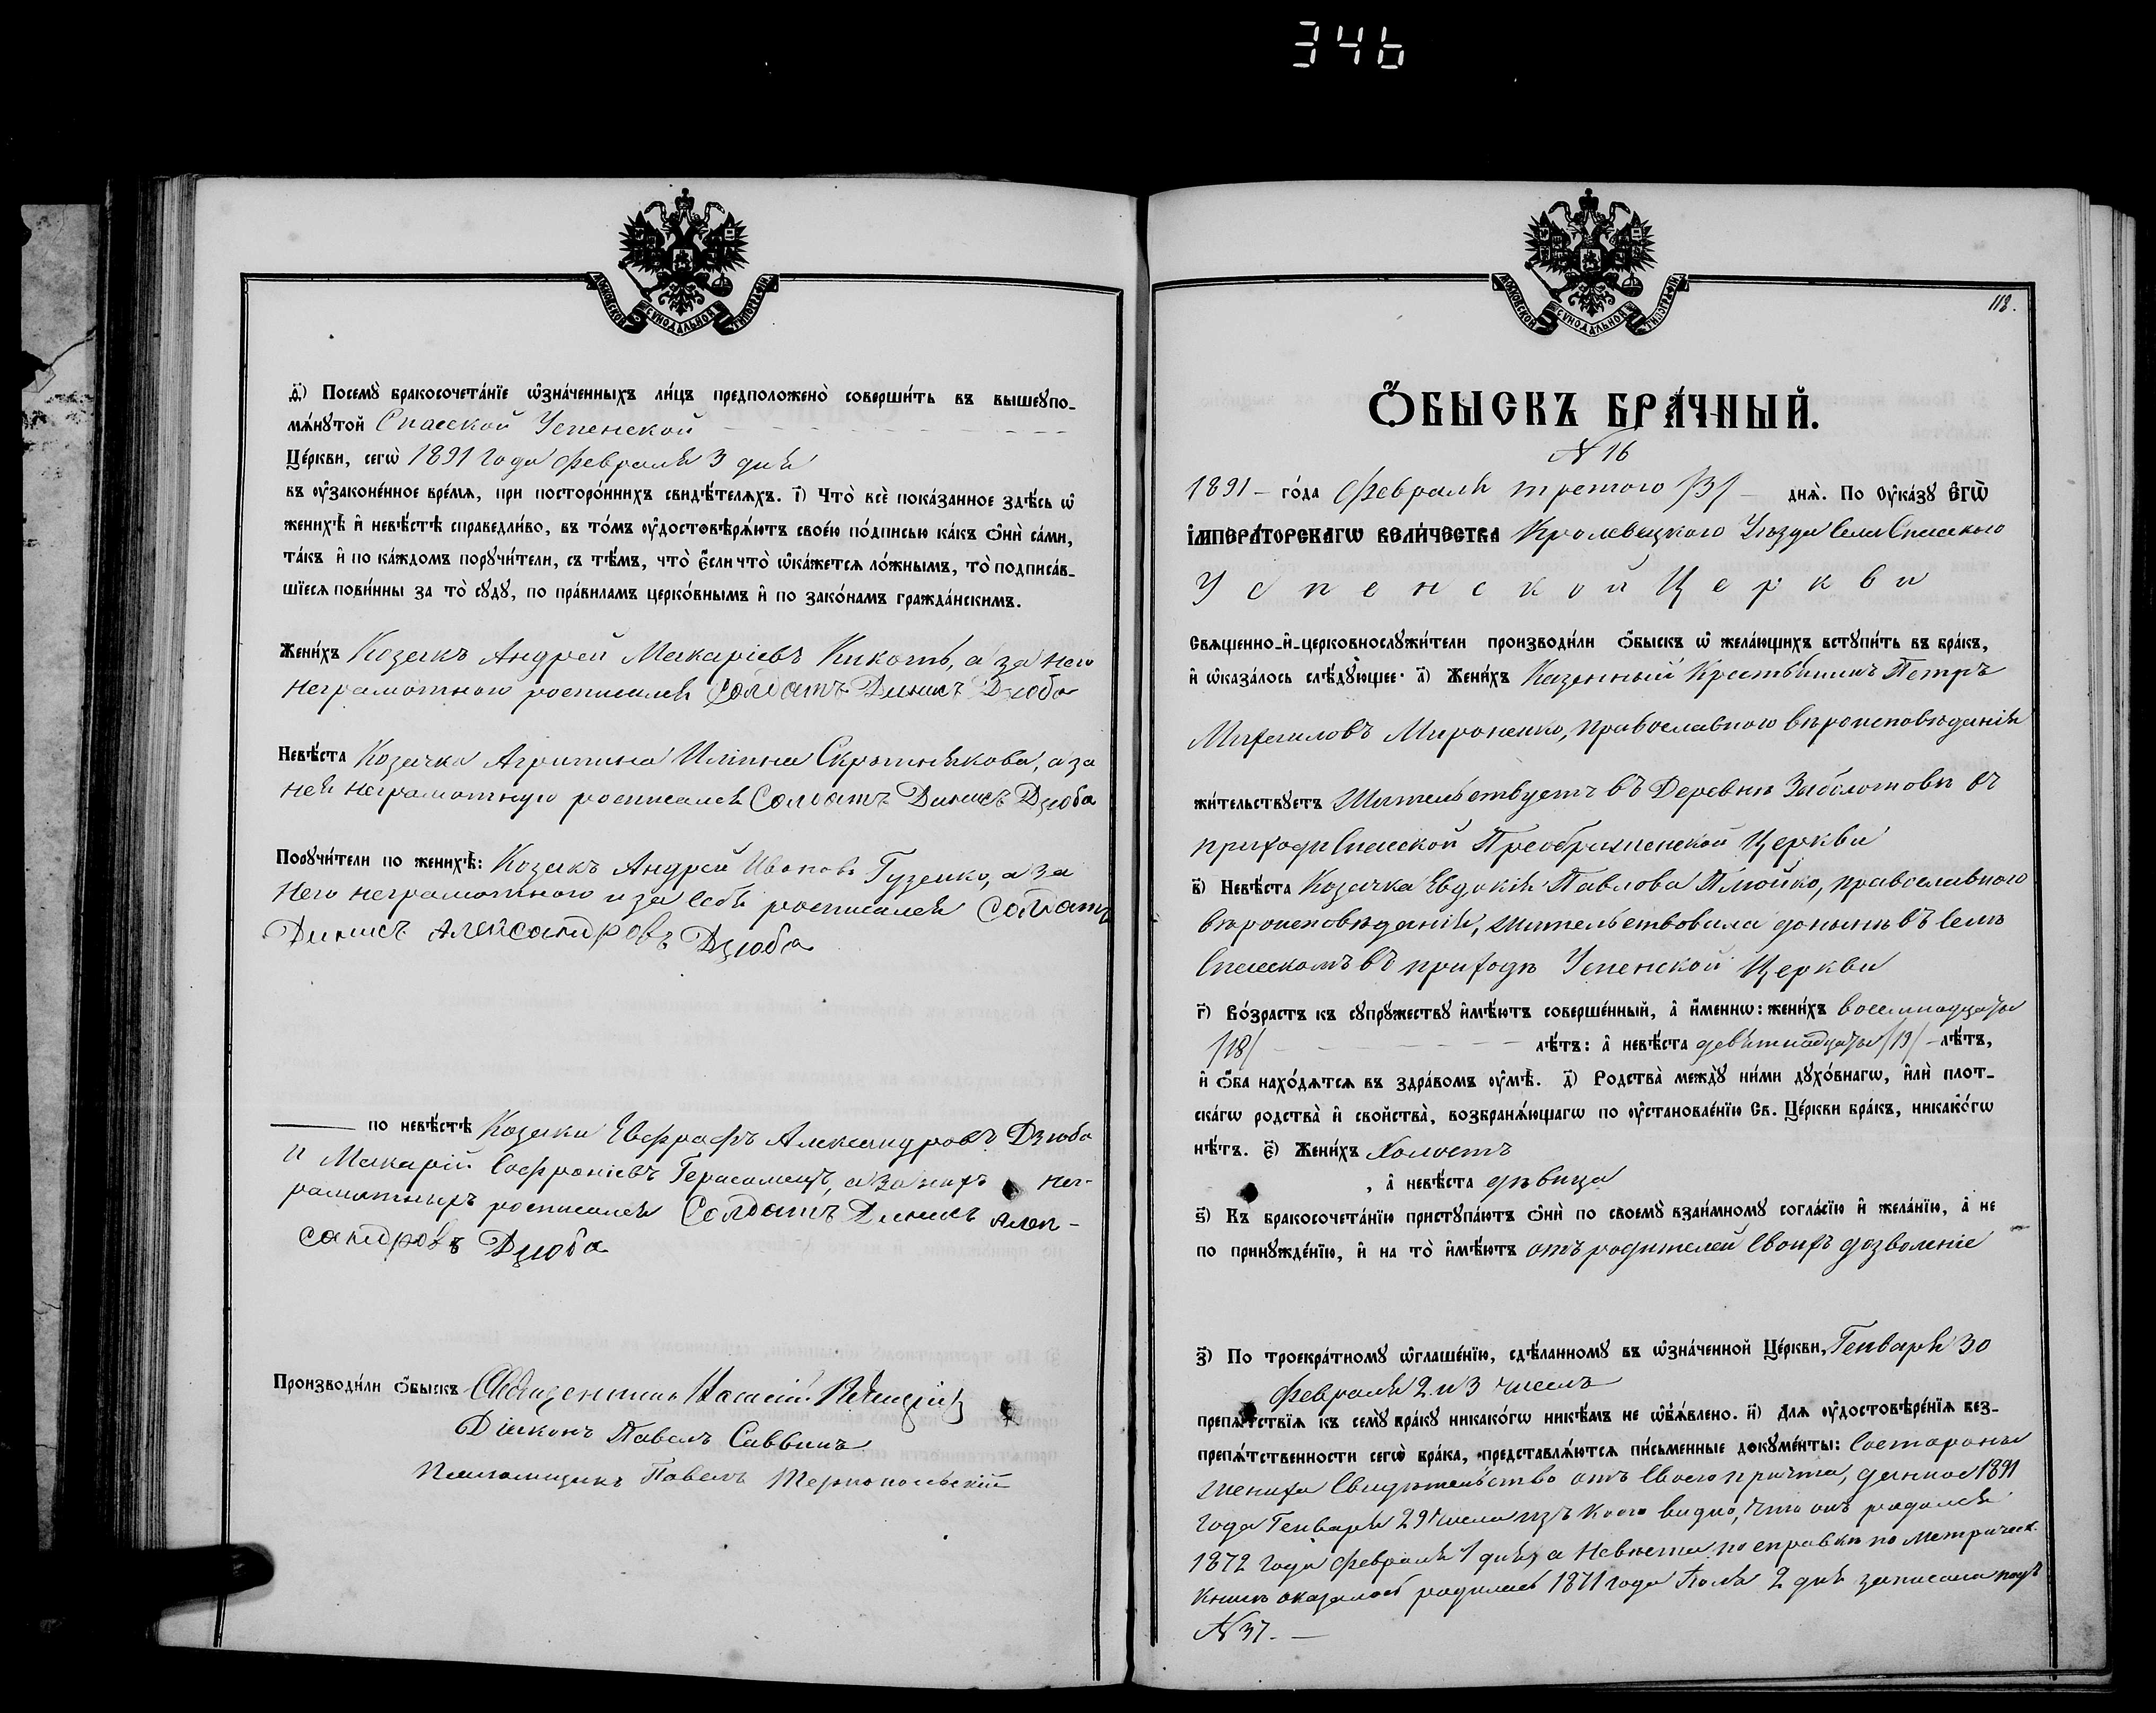 346
МОСКОВСКОЙ СѴНОДАЛЬНОЙ ТИПОГРАФІИ
д҃і) Посемꙋ̀ бракосочета́нїе ѡ҆зна́ченныхъ ли́цъ предположено̀ соверши́ть въ вышеꙋпо-
мѧ́нꙋтой Спасской Успенской
Це́ркви, сегѡ̀ 1891 года Февраля 3 дня
въ ᲂу҆законе́нное вре́мѧ, при посторо́ннихъ свидѣ́телѧхъ. і҃) Что̀ всѐ пока́занное здѣ́сь ѡ҆
женихѣ̀ и҆ невѣ́стѣ справедли́во, въ то́мъ ᲂу҆достовѣрѧ́ютъ свое́ю по́дписью ка́къ ѻ҆нѝ са́ми,
та́къ и҆ по ка́ждомъ порꙋчи́тели, съ тѣ́мъ, что̀ є҆́сли что̀ ѡ҆ка́жетсѧ ло́жнымъ, то̀ подписа́в-
шїесѧ пови́нны за то̀ сꙋдꙋ̀, по пра́виламъ церко́внымъ и҆ по зако́намъ гражда́нскимъ.
Жени́хъ Козакъ Андрей Макаріевъ Кикоть, а за него
неграмотного росписался Солдатъ Динисъ Дзюба
Невѣ́ста Козачка Агрипина Иліина Скрытникова, а за
нея неграмотную росписался Солдатъ Динисъ Дзюба
Порꙋчи́тели по женихѣ̀: Козакъ Андрей Ивановъ Гузенко, а за
него неграмотного и за себя росписался Солдатъ
Динисъ Александровъ Дзюба
по невѣ́стѣ Козаки Евфрафъ Александровъ Дзюба
и Макарій Софроніевъ Герасомецъ, а за нихъ нег-
рамотныхъ росписался Солдатъ Динисъ Алек-
сандровъ Дзюба
Производи́ли ѻ҆́быскъ Священникъ
Діаконъ Павелъ Саввинъ
Псаломщикъ Павелъ Тернопольскій
МОСКОВСКОЙ СѴНОДАЛЬНОЙ ТИПОГРАФІИ
118.
Ѻ҆́БЫСКЪ БРА́ЧНЫЙ.
N 16
1891 – го́да Февраля третого /3/ – днѧ̀. По Оу҆ка́зꙋ Є҆ГѠ̀
І҆МПЕРА́ТОРСКАГѠ ВЕЛИ́ЧЕСТВА Кролевецкого Уѣзда Села Спаского
Успенской Церкви
Свѧщенно-и҆-церковнослꙋжи́тели производи́ли ѻ҆́быскъ ѡ҆ жела́ющихъ встꙋпи́ть въ бра́къ,
и҆ ѡ҆каза́лось слѣ́дꙋющее: а҃) Жени́хъ Казенный Крестьянинъ Петръ
Михаиловъ Мироненко, православного вѣроисповѣданія
жи́тельствꙋетъ жительствуетъ въ Деревнѣ Заболотовѣ въ
приходѣ Спасской Преображенской Церкви
в҃) Невѣ́ста Козачка Евдокія Павлова Плюйко, православного
вѣроисповѣданія, жительствовала донынѣ въ Селѣ
Спасскомъ въ приходѣ Успенской Церкви
г҃) Во́зрастъ къ сꙋпрꙋ́жествꙋ и҆мѣ́ютъ соверше́нный, а҆ и҆́меннѡ: жени́хъ восемнадцать
/18/ лѣ́тъ: а҆ невѣ́ста девятнадцать /19/ – лѣ́тъ,
и҆ ѻ҆́ба нахо́дѧтсѧ въ здра́вомъ ᲂу҆мѣ̀. д҃) Родства̀ междꙋ̀ ни́ми дꙋхо́внагѡ, и҆лѝ плот-
ска́гѡ родства̀ и҆ свойства̀, возбранѧ́ющагѡ по ᲂу҆становле́нїю Св. Це́ркви бра́къ, никако́гѡ
нѣ́тъ. є҃) Жени́хъ Холостъ
, а҆ невѣ́ста дѣвица
ѕ҃) Къ бракосочета́нїю пристꙋпа́ютъ ѻ҆нѝ по своемꙋ̀ взаи́мномꙋ согла́сїю и҆ жела́нїю, а҆ не
по принꙋжде́нїю, и҆ на то̀ и҆мѣ́ютъ отъ родителей своихъ дозволеніе
з҃) По троекра́тномꙋ ѡ҆глаше́нїю, сдѣ́ланномꙋ въ ѡ҆зна́ченной Це́ркви, Генваря 30
Февраля 2 и 3 числъ
препѧ́тствїѧ къ семꙋ̀ бра́кꙋ никако́гѡ никѣ́мъ не ѡ҆б̾ѧ́влено. и҃) Для ᲂу҆достовѣре́нїѧ без-
препѧ́тственности сегѡ̀ бра́ка, представлѧ́ютсѧ пи́сьменные докꙋме́нты: Состороны
жениха Свидѣтельство отъ своего причта, данное 1891
года Генваря 29 числа изъ коего видно, что онъ родился
1872 года Февраля 1 дня, а Невѣста по справкѣ по метрическ.
книгѣ оказалась родилась 1871 года Іюля 2 дня записана подъ
N 37. –